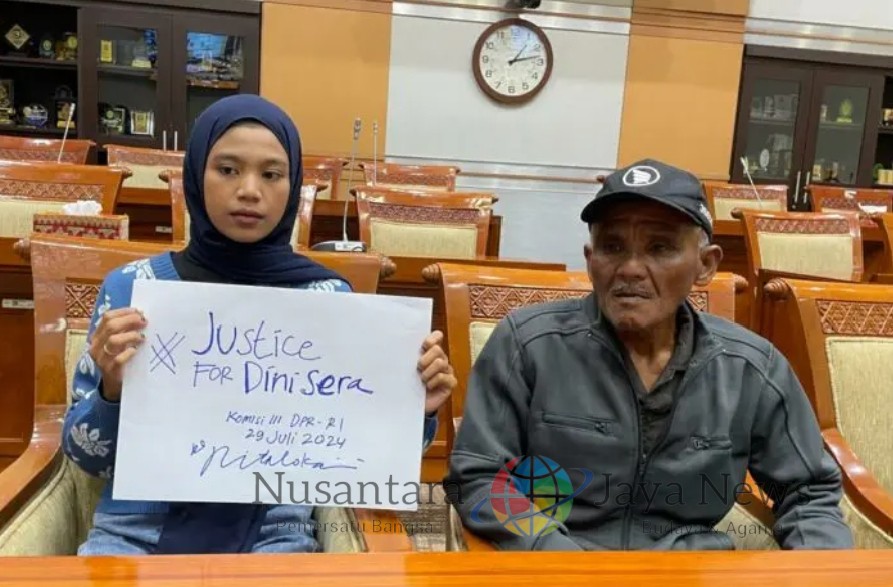 # Justice
FOR Dini Sera
Komisi III DPR-RI
29 Juli 2024
Nusantara Jaya News
Pemersatu Bangsa Budaya & Agama